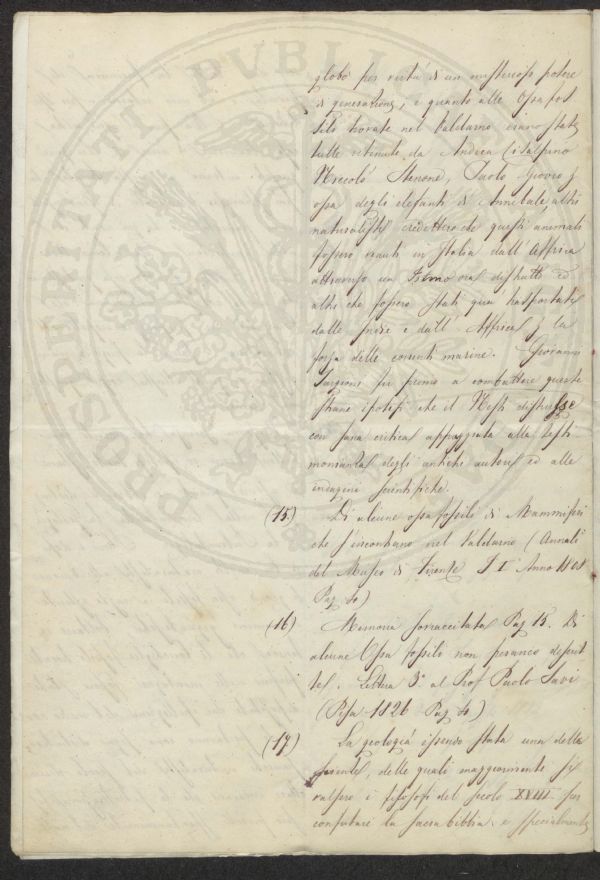 globo per virtù di un misterioso potere
di generazione, e quanto alle Ossa fos
sili trovate nel Valdarno erano state
tutte ritenute da Andrea Cisalpino
Niccolò Stenone, Paolo Giovio p
ossa degli elefanti di Annibale, altri
naturalisti credettero che questi animali
fossero venuti in Italia dall' Affrica
attraverso un Istmo ora distrutto ed
altri che fossero stati qua trasportati
dalle Indie e dall' Affrica p la
forza delle correnti marine. Giovanni
Targioni fu primo a combattere queste
strane ipotesi che il Nesti distrusse
con sana critica appoggiata alla testi
monianza degli antichi autori ed alle
indagini scientifiche.
(15.) Di alcune ossa fossili di Mammiferi
che s'incontrano nel Valdarno (Annali
del Museo di Firenze T I Anno 1808
Pag
(16) Memoria sorraccitata Pag 15. Di
alcune Ossa fossili non peranco descrit
te. Lettera 3ª al Prof Paolo Savi
(Pisa 1826 Pag
(17) La geologia essendo stata una delle
scienze, delle quali maggiormente si
valsero i filosofi del secolo XVIII per
confutare la sacra bibbia, e specialmente
PROSPERITATI PVBLICAE